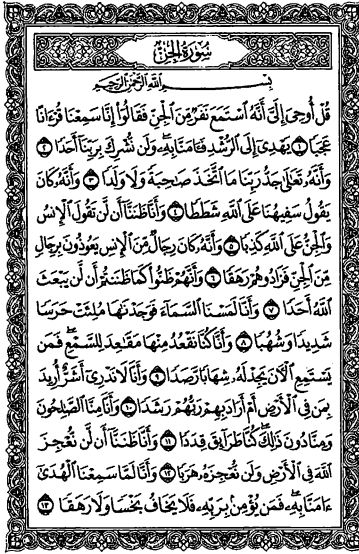 سُورَةُ الجِنّ
بِسْمِ اللَّهِ الرَّحْمَٰنِ الرَّحِيمِ
قُلْ أُوحِىَ إِلَىَّ أَنَّهُ ٱسْتَمَعَ نَفَرٌ مِّنَ ٱلْجِنِّ فَقَالُوٓا۟ إِنَّا سَمِعْنَا قُرْءَانًا
عَجَبًا ١ يَهْدِىٓ إِلَى ٱلرُّشْدِ فَـَٔامَنَّا بِهِۦ وَلَن نُّشْرِكَ بِرَبِّنَآ أَحَدًا ٢
وَأَنَّهُۥ تَعَٰلَىٰ جَدُّ رَبِّنَا مَا ٱتَّخَذَ صَٰحِبَةً وَلَا وَلَدًا ٣ وَأَنَّهُۥ كَانَ
يَقُولُ سَفِيهُنَا عَلَى ٱللَّهِ شَطَطًا ٤ وَأَنَّا ظَنَنَّآ أَن لَّن تَقُولَ ٱلْإِنسُ
وَٱلْجِنُّ عَلَى ٱللَّهِ كَذِبًا ٥ وَأَنَّهُۥ كَانَ رِجَالٌ مِّنَ ٱلْإِنسِ يَعُوذُونَ بِرِجَالٍ
مِّنَ ٱلْجِنِّ فَزَادُوهُمْ رَهَقًا ٦ وَأَنَّهُمْ ظَنُّوا۟ كَمَا ظَنَنتُمْ أَن لَّن يَبْعَثَ
ٱللَّهُ أَحَدًا ٧ وَأَنَّا لَمَسْنَا ٱلسَّمَآءَ فَوَجَدْنَٰهَا مُلِئَتْ حَرَسًا
شَدِيدًا وَشُهُبًا ٨ وَأَنَّا كُنَّا نَقْعُدُ مِنْهَا مَقَٰعِدَ لِلسَّمْعِ فَمَن
يَسْتَمِعِ ٱلْـَٔانَ يَجِدْ لَهُۥ شِهَابًا رَّصَدًا ٩ وَأَنَّا لَا نَدْرِىٓ أَشَرٌّ أُرِيدَ
بِمَن فِى ٱلْأَرْضِ أَمْ أَرَادَ بِهِمْ رَبُّهُمْ رَشَدًا ١٠ وَأَنَّا مِنَّا ٱلصَّٰلِحُونَ
وَمِنَّا دُونَ ذَٰلِكَ كُنَّا طَرَآئِقَ قِدَدًا ١١ وَأَنَّا ظَنَنَّآ أَن لَّن نُّعْجِزَ
ٱللَّهَ فِى ٱلْأَرْضِ وَلَن نُّعْجِزَهُۥ هَرَبًا ١٢ وَأَنَّا لَمَّا سَمِعْنَا ٱلْهُدَىٰٓ
ءَامَنَّا بِهِۦ فَمَن يُؤْمِنۢ بِرَبِّهِۦ فَلَا يَخَافُ بَخْسًا وَلَا رَهَقًا ١٣